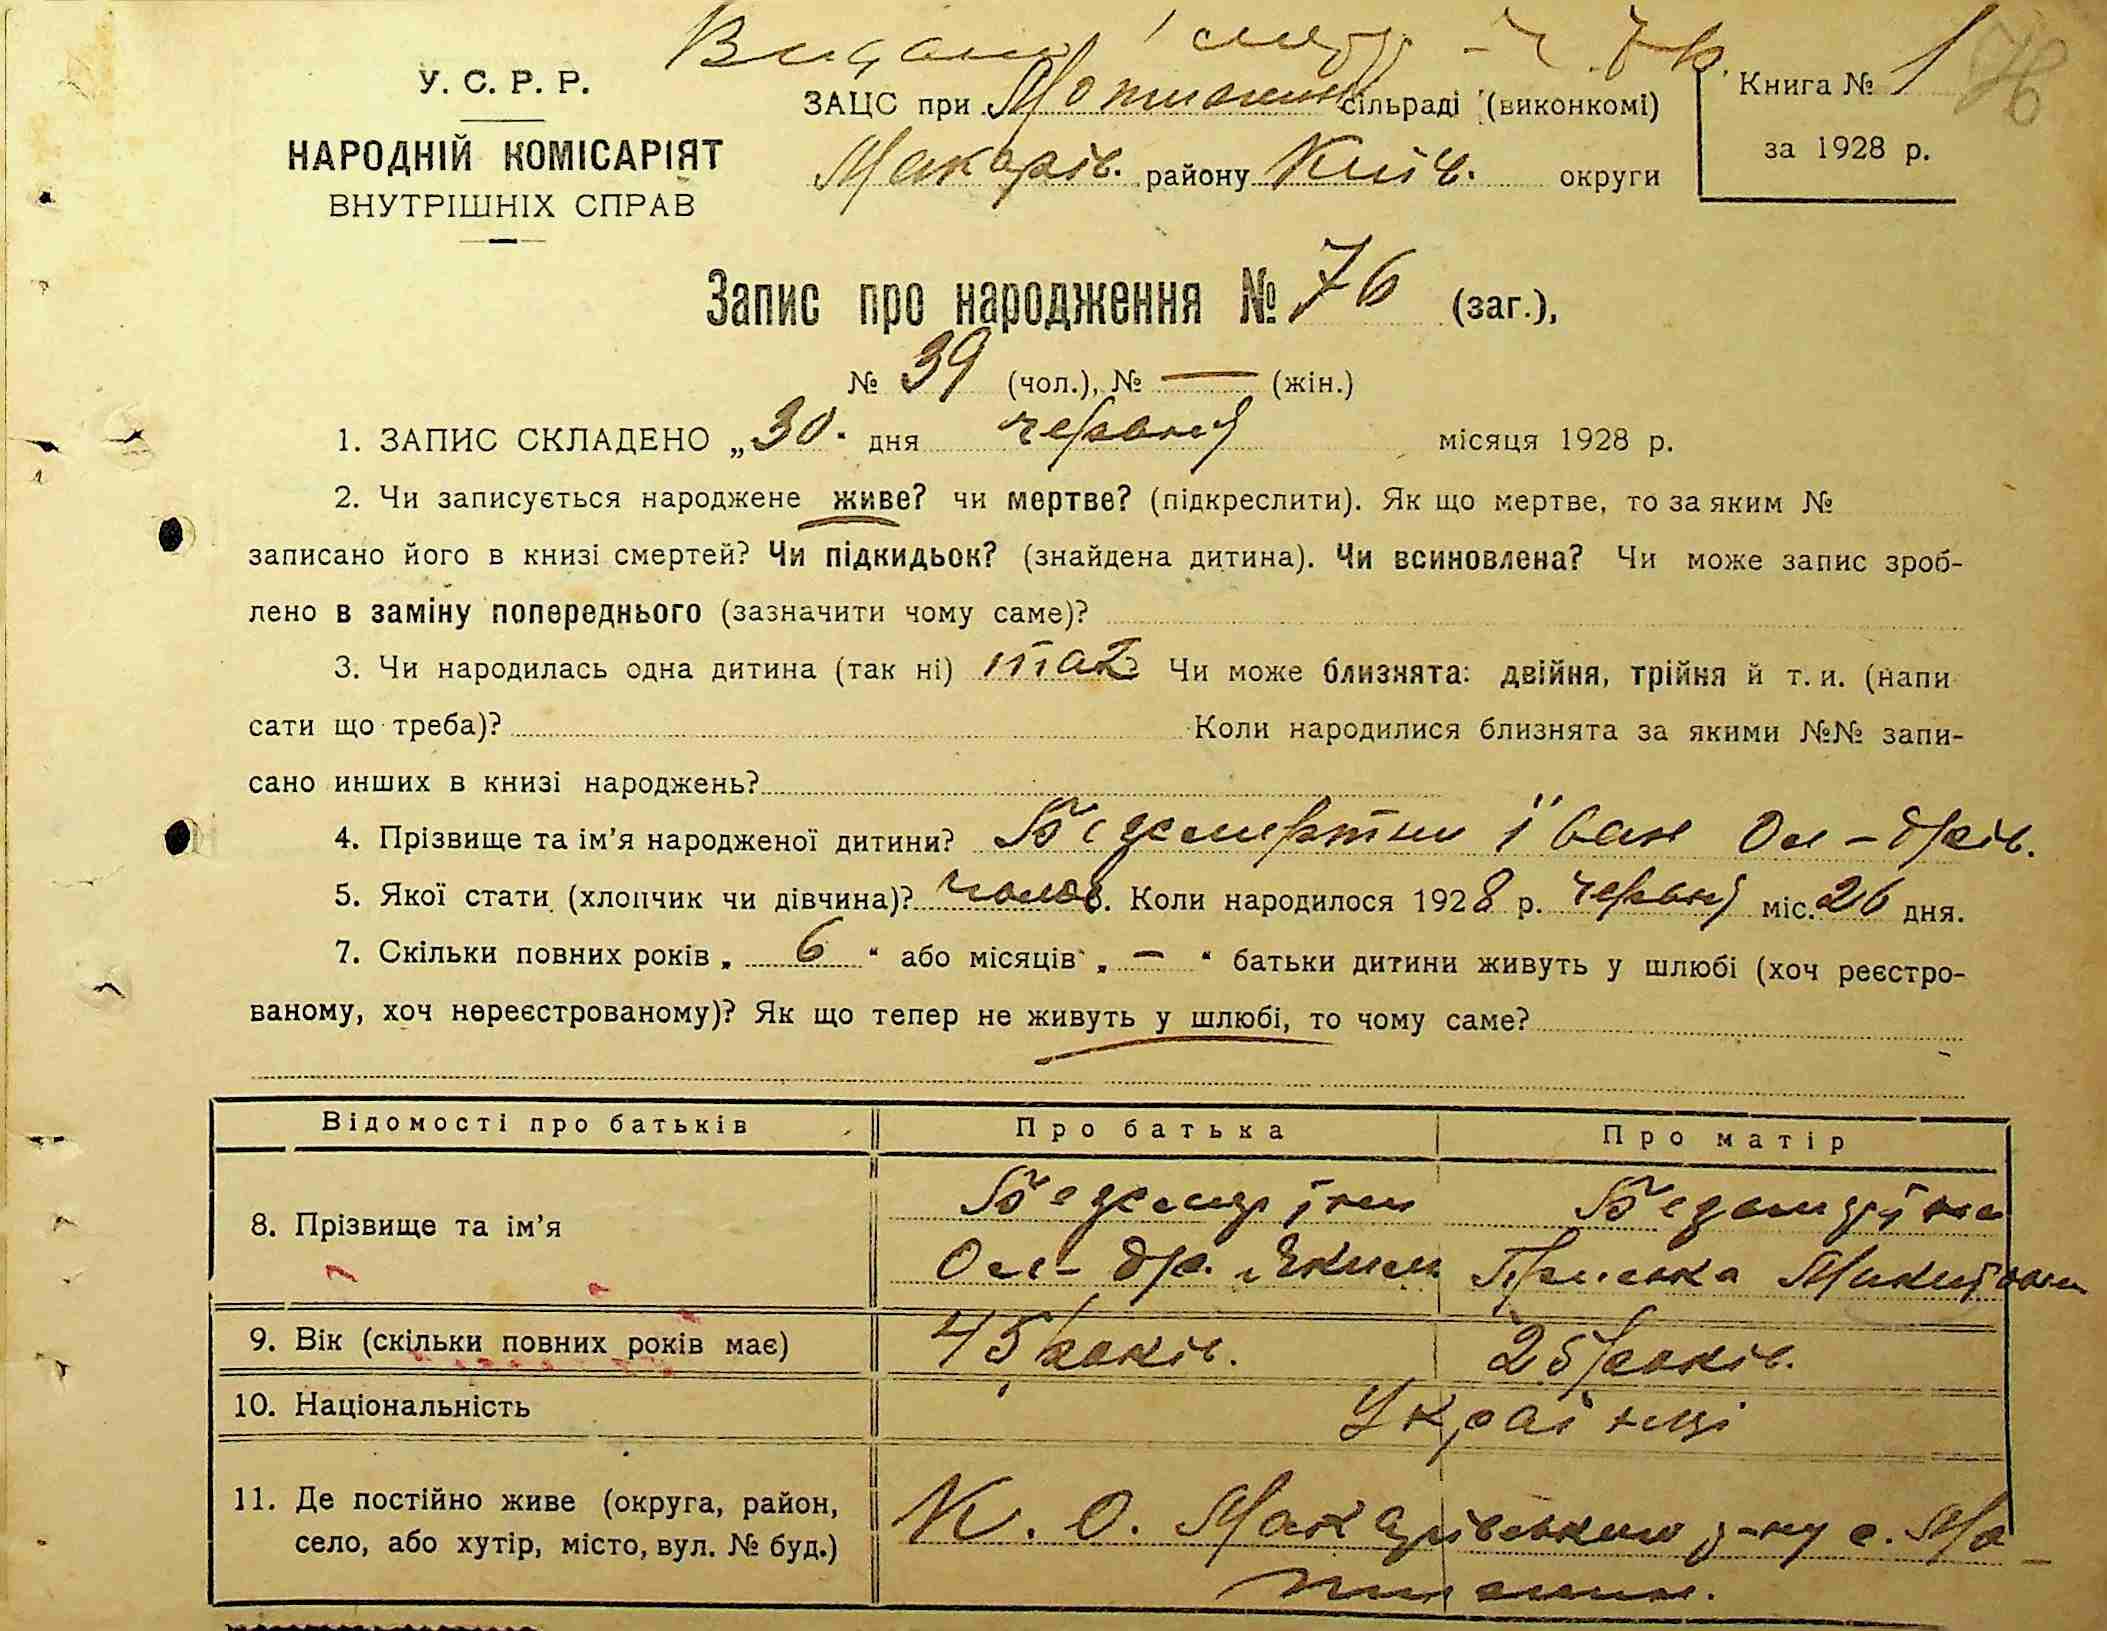 У. С. Р. Р.
НАРОДНІЙ КОМІСАРІЯТ
ВНУТРІШНІХ СПРАВ
ЗАЦС при сільраді (виконкомі)
Макарів. району Київ. округи
Книга № 1
76
за 1928 р.
Запис про народження № 76 (заг.),
№ 39 (чол.), № — (жін.)
1. ЗАПИС СКЛАДЕНО „30. дня червня місяця 1928 р.
2. Чи записується народжене живе? чи мертве? (підкреслити). Як що мертве, то за яким №
записано його в книзі смертей? Чи підкидьок? (знайдена дитина). Чи всиновлена? Чи може запис зроб-
лено в заміну попереднього (зазначити чому саме)?
3. Чи народилась одна дитина (так ні) так Чи може близнята: двійня, трійня й т. и. (напи
сати що треба)? Коли народилися близнята за якими №№ запи-
сано инших в книзі народжень?
4. Прізвище та ім'я народженої дитини? Іван Ол-дрів.
5. Якої стати (хлопчик чи дівчина)? чолов. Коли народилося 1928 р. червня міс. 26 дня.
7. Скільки повних років „ 6 “ або місяців „ — “ батьки дитини живуть у шлюбі (хоч реєстро-
ваному, хоч нереєстрованому)? Як що тепер не живуть у шлюбі, то чому саме?
Відомості про батьків Про батька Про матір
8. Прізвище та ім'я
Ол-др. Яким Пріська
9. Вік (скільки повних років має) 45 років. 25 років.
10. Національність Українці
11. Де постійно живе (округа, район, К. О. Макарівського р-ну с. Мо-
село, або хутір, місто, вул. № буд.) тижин.